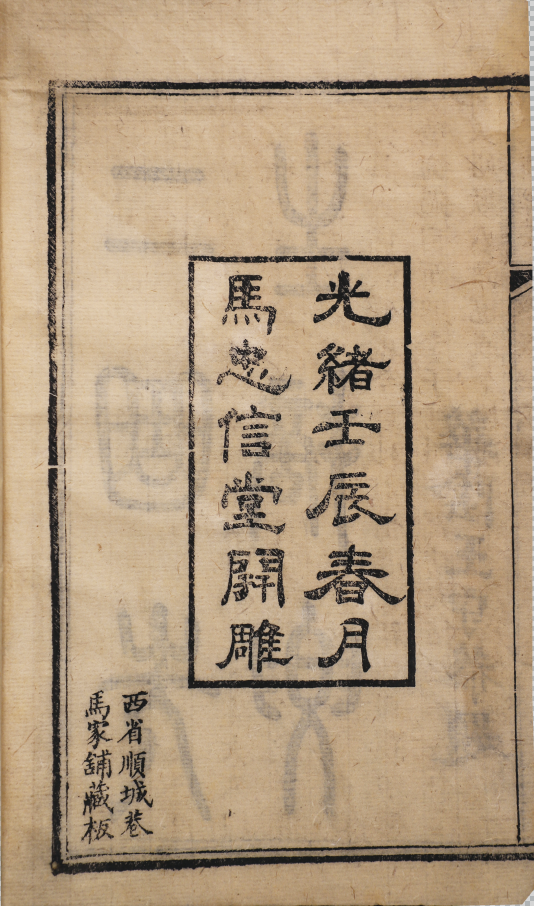 光緒壬辰春月
馬忠信堂開雕
西省順城巷
馬家舖藏板